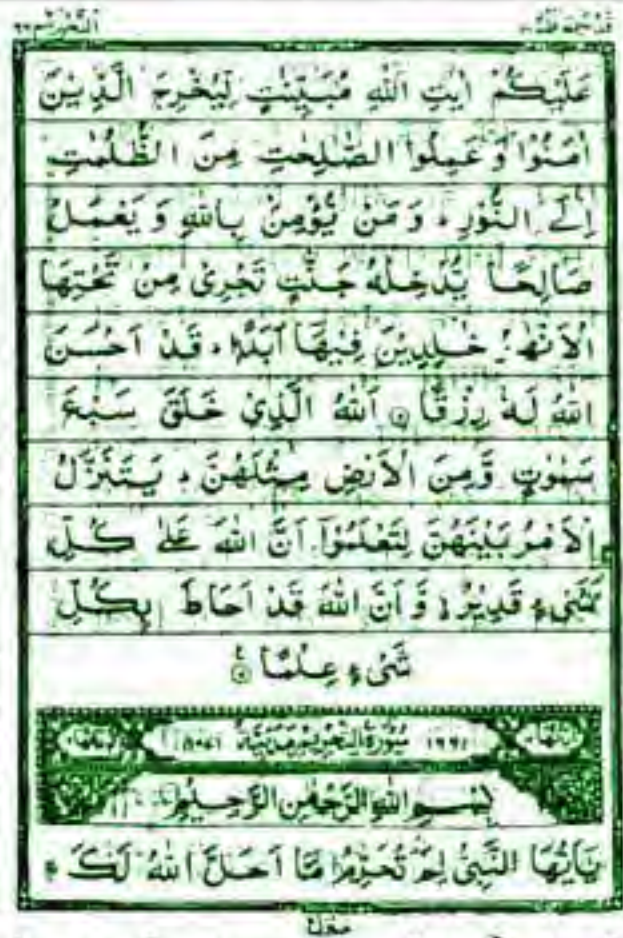 قَدْ سَمِعَ اللهُ ٢٨
التَّحْرِيْم ٦٦
عَلَيْكُمْ اٰيٰتِ اللهِ مُبَيِّنٰتٍ لِّيُخْرِجَ الَّذِيْنَ
اٰمَنُوْا وَعَمِلُوا الصّٰلِحٰتِ مِنَ الظُّلُمٰتِ
اِلَى النُّوْرِ ؕ وَمَنْ يُّؤْمِنْۢ بِاللهِ وَيَعْمَلْ
صَالِحًا يُّدْخِلْهُ جَنّٰتٍ تَجْرِيْ مِنْ تَحْتِهَا
الْاَنْهٰرُ خٰلِدِيْنَ فِيْهَاۤ اَبَدًا ؕ قَدْ اَحْسَنَ
اللهُ لَهٗ رِزْقًا ۞ اَللهُ الَّذِيْ خَلَقَ سَبْعَ
سَمٰوٰتٍ وَّمِنَ الْاَرْضِ مِثْلَهُنَّ ؕ يَتَنَزَّلُ
الْاَمْرُ بَيْنَهُنَّ لِتَعْلَمُوْۤا اَنَّ اللهَ عَلٰى كُلِّ
شَيْءٍ قَدِيْرٌ ۙ وَّاَنَّ اللهَ قَدْ اَحَاطَ بِكُلِّ
شَيْءٍ عِلْمًا ۞
سُوْرَةُ التَّحْرِيْمِ مَدَنِيَّةٌ
بِسْمِ اللهِ الرَّحْمٰنِ الرَّحِيْمِ
يٰۤاَيُّهَا النَّبِيُّ لِمَ تُحَرِّمُ مَاۤ اَحَلَّ اللهُ لَكَ ۚ